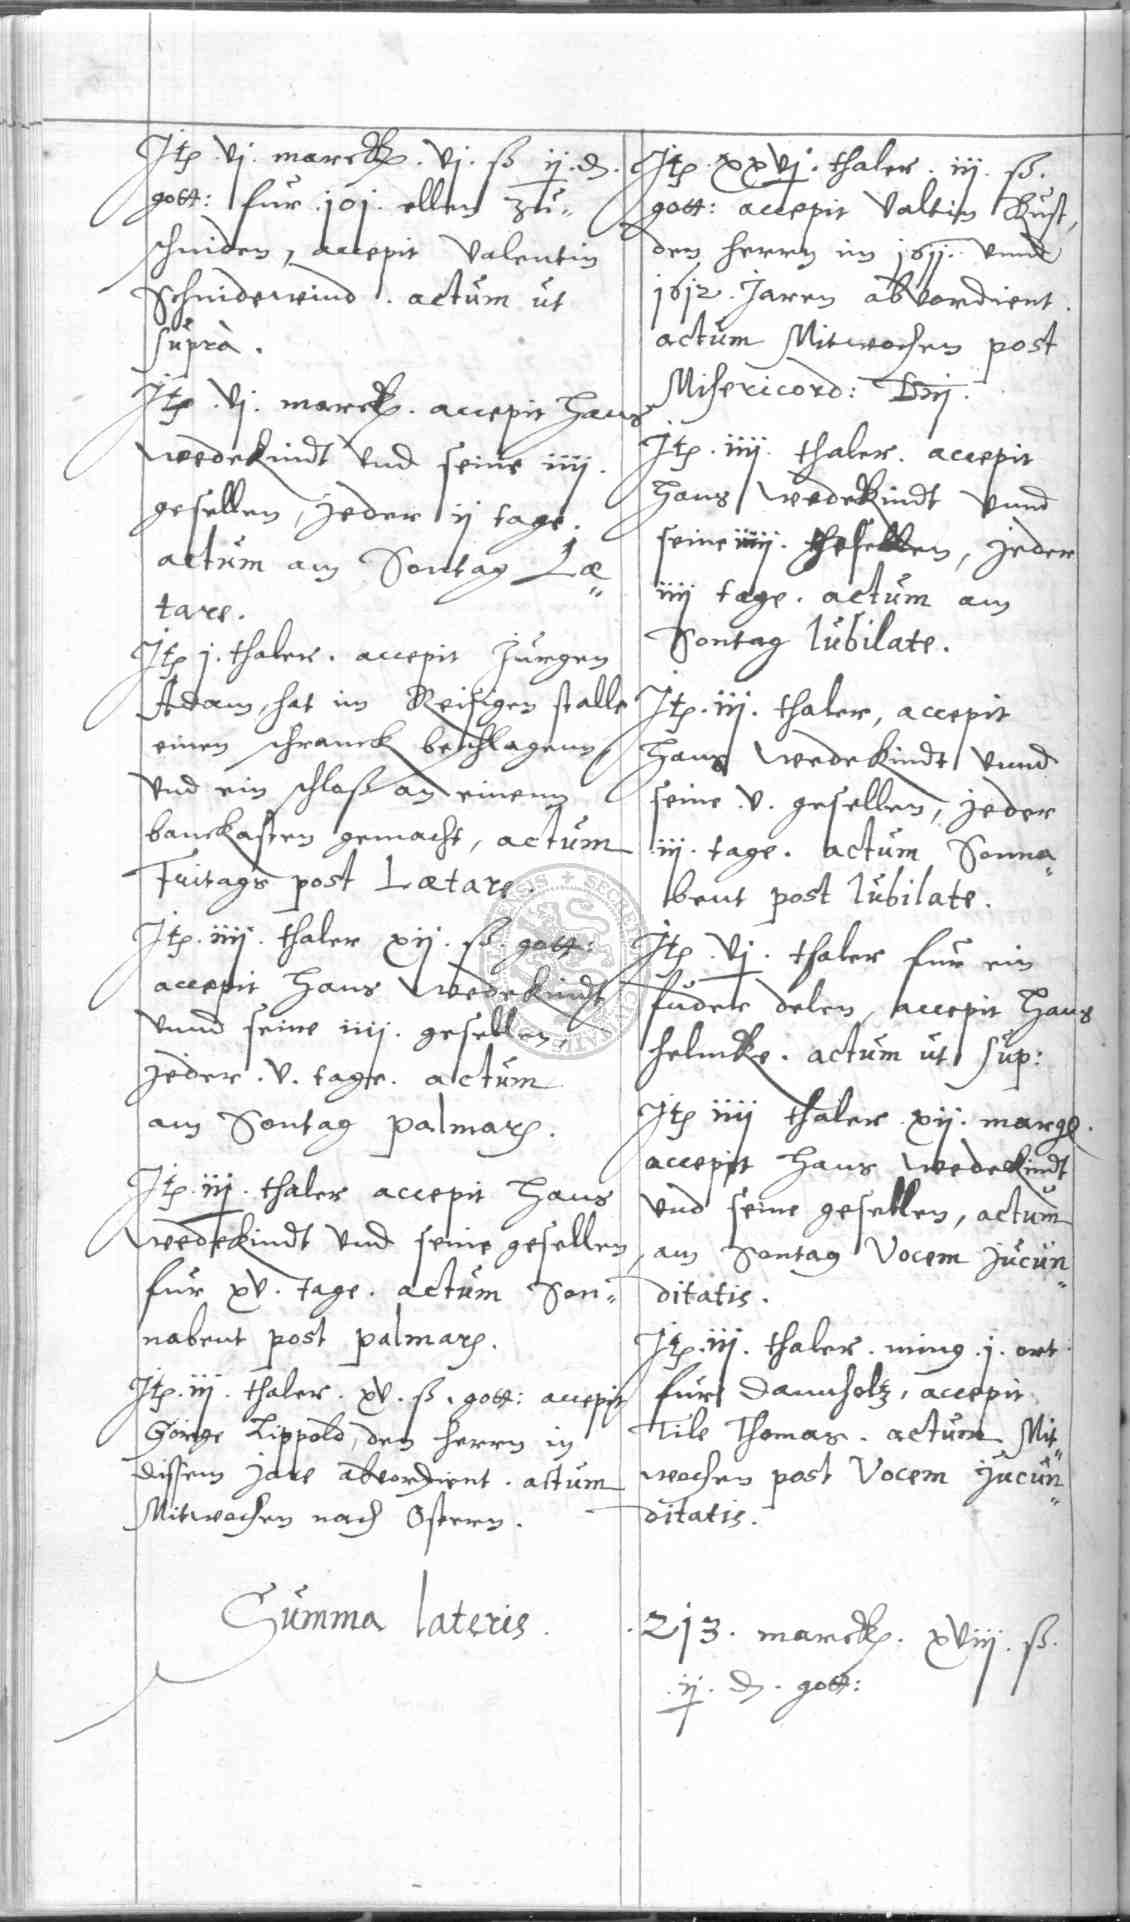 Jtz. vj. marck. vj. ß ij. d.
gott: fur .101. ellen zu-
schniden, accepit Valentin
Schnidewind. actum ut
supra.
Jtz. vj. marck. accepit Hans
Wedekindt vnd seine iiij.
gesellen, jeder ij tage.
actum am Sontag Læ-
tare.
Jtz j. thaler. accepit Jurgen
Adam, hat im Reisigen stalle
einen schranck beschlagenn,
vnd ein schloß an einem
banckasten gemacht, actum
Fritags post Lætare.
Jtz. iiij. thaler xij. ß gott:
accepit Hans Wedekindt
vnnd seine iiij. gesellen,
jeder .v. tage. actum
am Sontag palmarz.
Jtz. iij. thaler accepit Hans
Wedekindt vnd seine gesellen,
fur xv. tage. actum Son-
nabent post palmarz.
Jtz. iij. thaler. xv. ß. gott: accepit
Görge Lippold, den herrn in
dissem jare abvordient. actum
Mitwochen nach Ostern.
Summa lateris.
Jtz. xxvj. thaler. iij. ß.
gott: accepit Valtin Kust,
den herrn im 1611. vnnd
1612. Jaren abvordient.
actum Mitwochen post
Misericord: Dnj.
Jtz. iiij. thaler. accepit
Hans Wedekindt vnnd
seine iiij. gesellen, jeder
iiij tage. actum am
Sontag Iubilate.
Jtz. iij. thaler, accepit
Hans Wedekindt vnnd
seine .v. gesellen, jeder
.iij. tage. actum Sonna-
bent post Iubilate.
Jtz. vj. thaler fur ein
fuder delen, accepit Hans
Helmke. actum ut sup:
Jtz iiij thaler xij. marge.
accepit Hans Wedekindt
vnd seine gesellen, actum
am Sontag Vocem jucun-
ditatis.
Jtz. iij. thaler. ming. j. ort
fur dannholtz, accepit
Tile Thomas. actum Mit-
wochen post Vocem jucun-
ditatis.
.213. marck. xviij. ß.
.ij. d. gott: